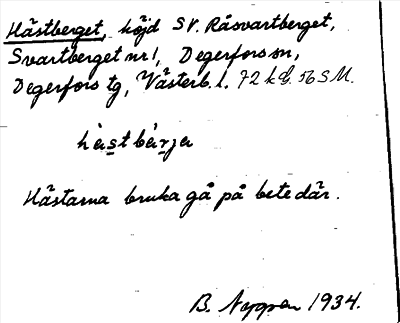 Hästberget, höjd SV. Råsvartberget,
Svartberget nr 1, Degerfors sn,
Degerfors tg, Västerb. l. 72 k.
hästbärja
Hästarna bruka gå på bete där.
B. 1934.